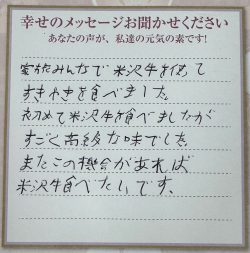 幸せのメッセージお聞かせください
あなたの声が、私達の元気の素です!
家族みんなで米沢牛を使って
すきやきを食べました。
初めて米沢牛を食べましたが
すごく高級な味でした。
またこの機会があれば
米沢牛食べたいです、